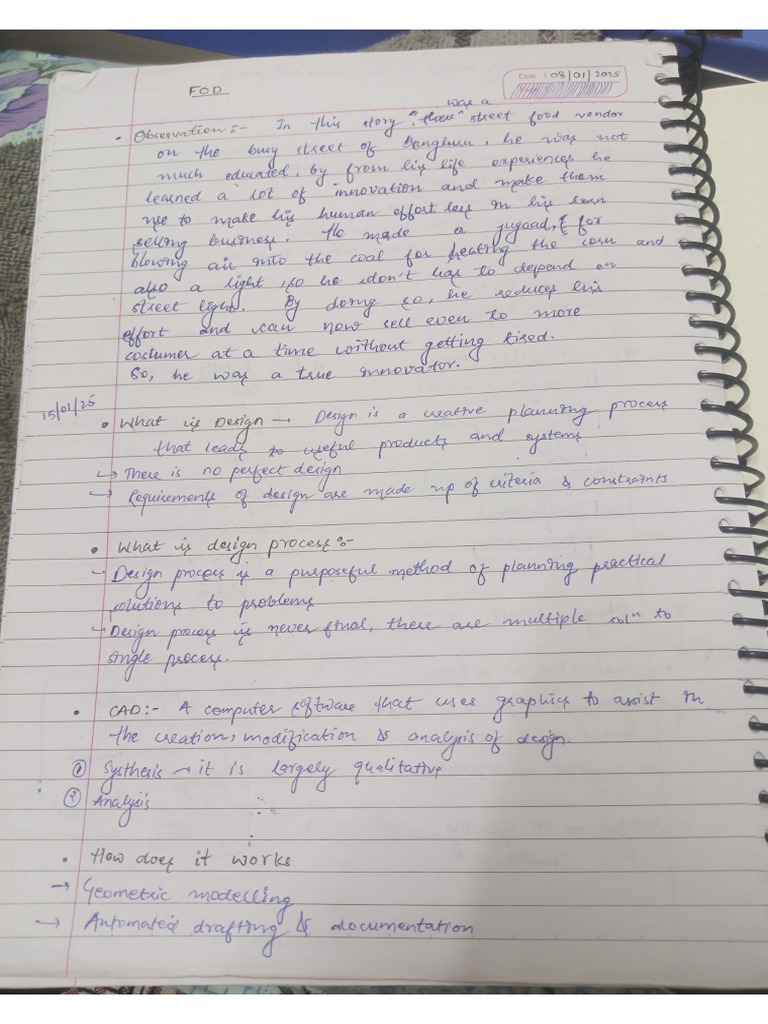 FOD
Date : 08/01/2025
was a
• Observation:- In this story "there" street food vendor
on the busy street of Bangluru, he was not
much educated, by from his life experiences he
learned a lot of innovation and make them
use to make his human effort less in his corn
selling business. He made a jugaad, for
blowing air into the coal for heating the corn and
also a light, so he don't has to depend on
street light. By doing so, he reduces his
effort and can now sell even to more
costumer at a time without getting tired.
So, he was a true innovator.
15/01/25
• What is Design → Design is a creative planning process
that leads to useful products and systems
↳ There is no perfect design
↳ Requirements of design are made up of criteria & constraints
• What is design process:-
↳ Design process is a purposeful method of planning practical
solutions to problems
↳ Design process is never final, there are multiple solⁿ to
single process.
• CAD:- A computer software that uses graphics to assist in
the creation, modification & analysis of design.
① Systhesis → it is largely qualitative
② Analysis
• How does it works
→ Geometric modelling
↳ Automated drafting & documentation